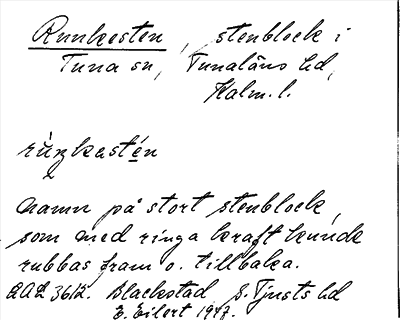 Runkesten, stenblock i
Tuna sn, Tunaläns hd,
Kalm. l.
namn på stort stenblock,
som med ringa kraft kunde
rubbas fram o. tillbaka.
Blackstad S. Tjusts hd
E. Eilert 1947.